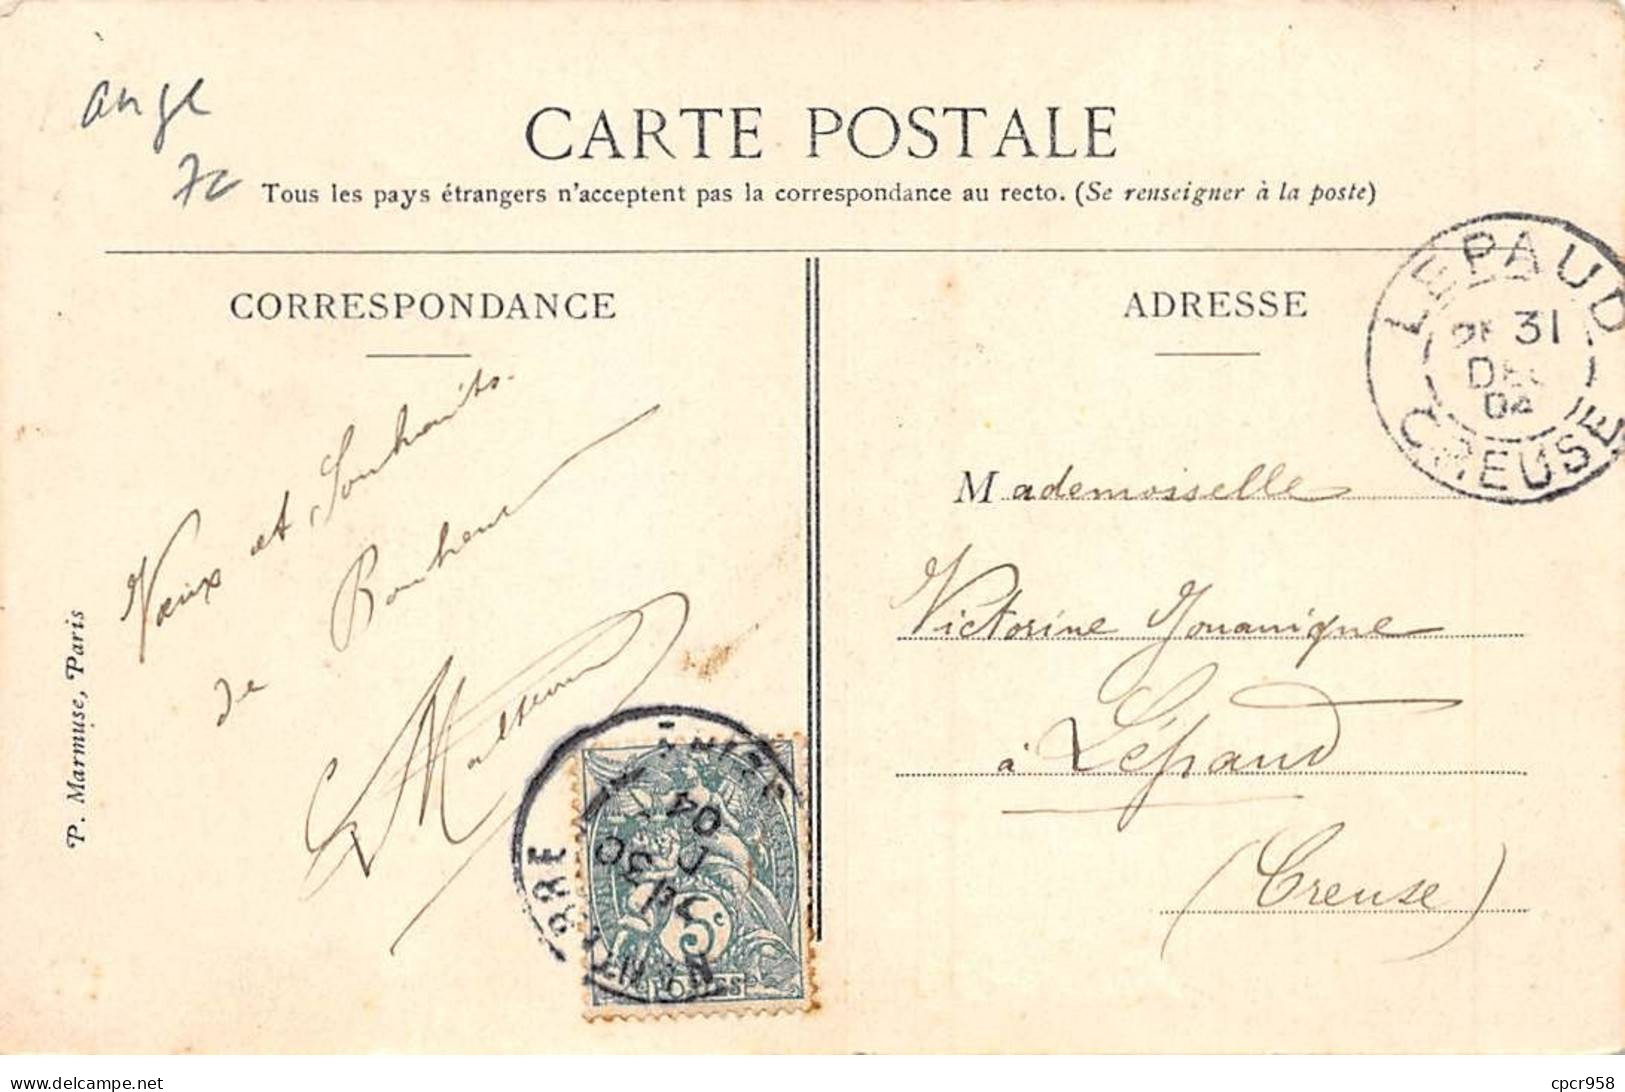 ange
7c
CARTE POSTALE
Tous les pays étrangers n'acceptent pas la correspondance au recto. (Se renseigner à la poste)
CORRESPONDANCE
Vœux et Souhaits
de Bonheur
P. Marmuse, Paris
5c
POSTES
30
04
ADRESSE
LEPAUD
31
DEC
04
CREUSE
Mademoiselle
Victorine Jouanique
à Lépaud
(Creuse)
cpcr958